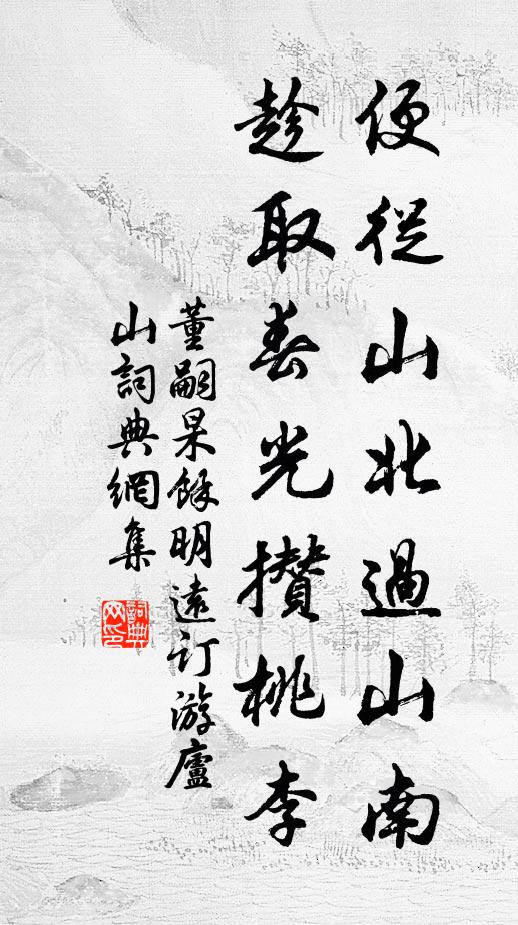 便從山北過山南
趁取春光攢桃李
董嗣杲餘明遠訂游廬
山詞典網集
詞典網印